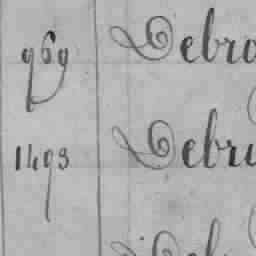 969 Debro
1493 Debru